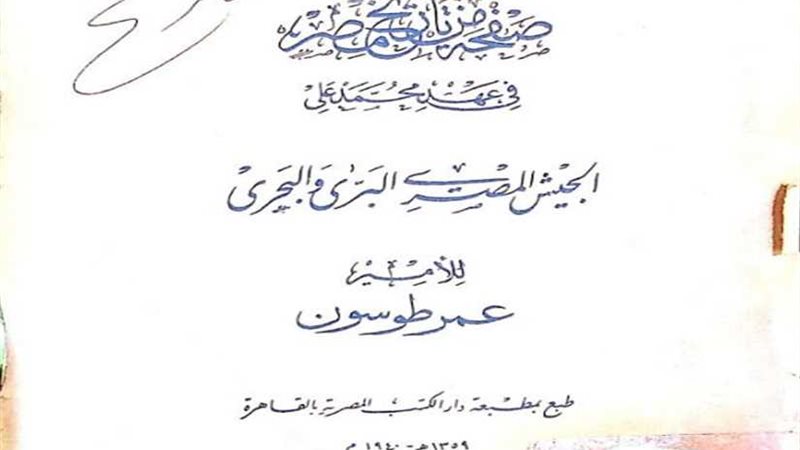 صفحة من تاريخ مصر
في عهد محمد علي
الجيش المصري البري والبحرى
للأمير
عمر طوسون
طبع بمطبعة دار الكتب المصرية بالقاهرة
١٣٥٩ هـ - ١٩٤٠ م